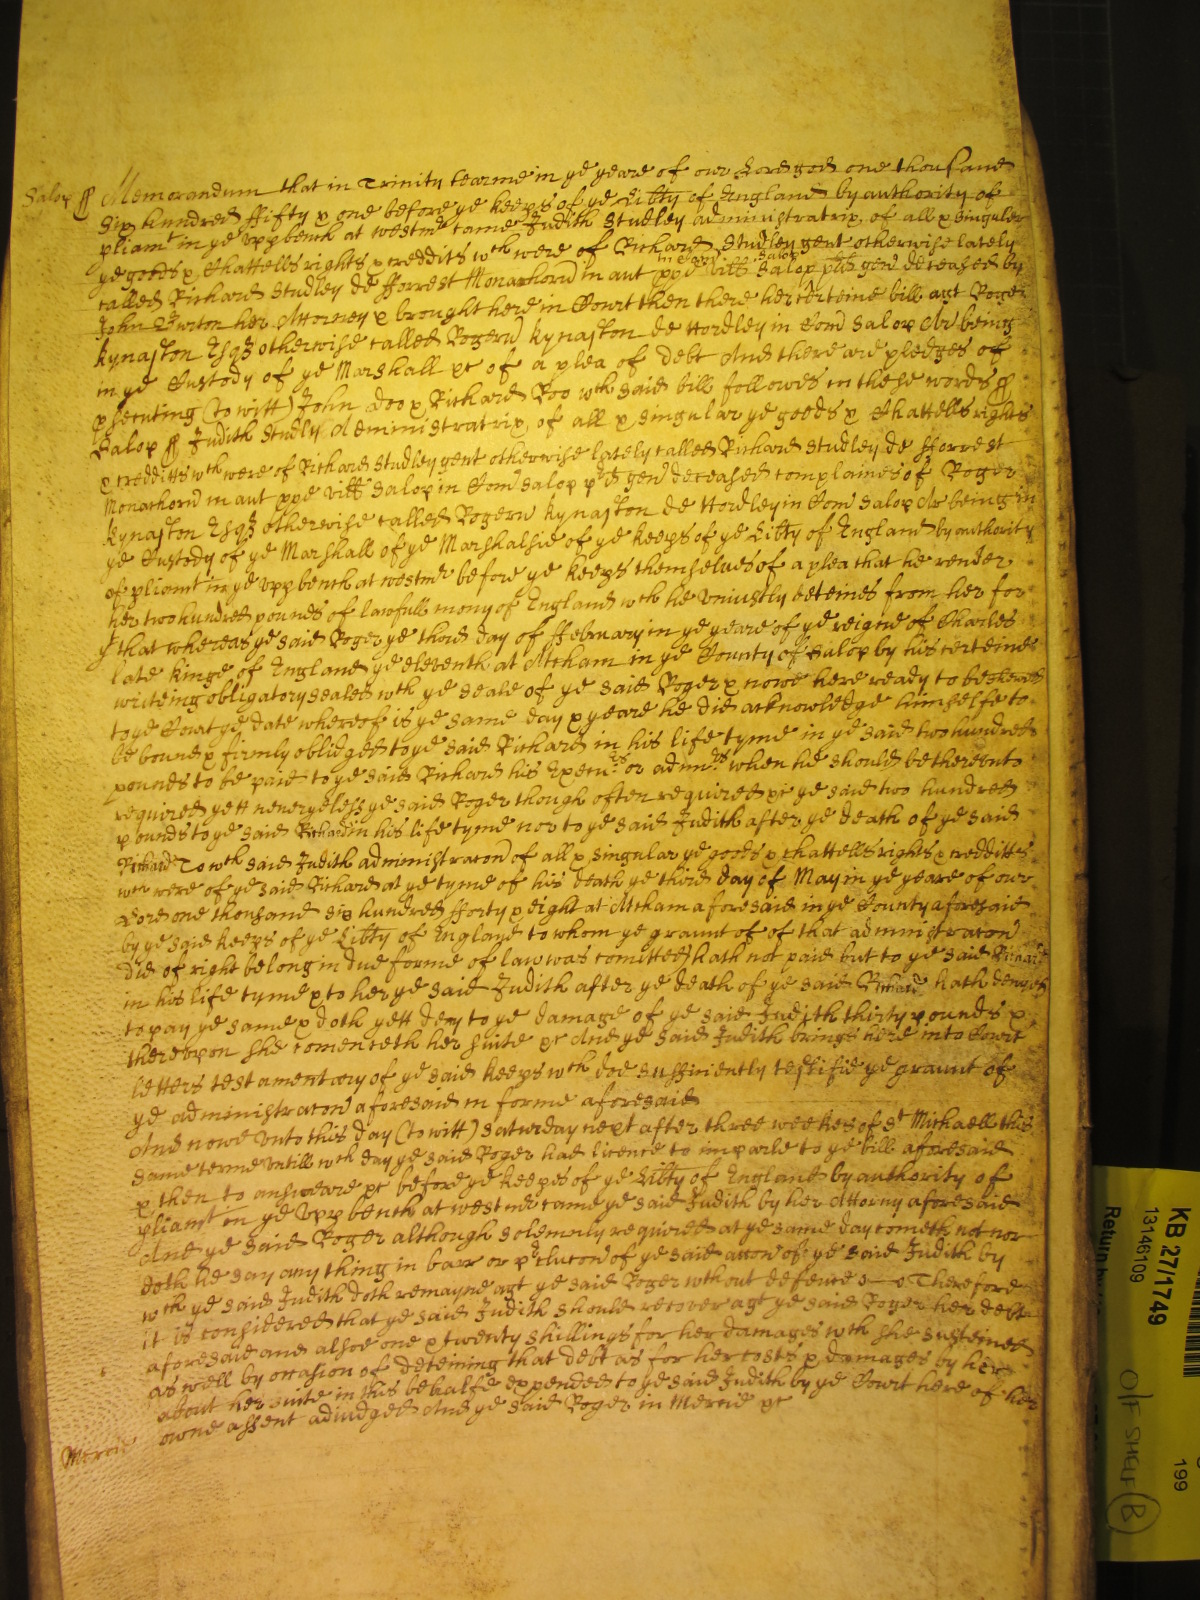 Salop ss Memorandum that in Trinity tearme in ye yeare of our Lord god one thousand
six hundred ffifty & one before ye keeps of ye Libty of England by authority of
pliamt in ye vpp bench at westmr came Judith Studley administratrix of all & singuler
ye goods & Chattells rights & creddits wch were of Richard Studley gent otherwise lately
called Richard Studley de fforrest Monachorū in aut ppe vitt Salop in Com Salop pds gen deceased by
John Burton her Attorney & brought here in Court then there her certeine bill agt Roger
kynaston Esqz otherwise called Rogerū kynaston de Hordley in Com Salop Ar being
in ye Custody of ye Marshall &c of a plea of debt And there are pledges of
psecuting (to witt) John doo & Richard Roo wch said bill followes in these words ss
Salop ss Judith Studly Administratrix of all & singular ye goods & Chattells rights
& credditts wch were of Richard Studley gent otherwise lately called Richard Studley de fforrest
Monachorū in aut ppe vitt Salop in Com Salop pds gen deceased complaines of Roger
kynaston Esqz otherwise called Rogerū kynaston de Hordley in Com Salop Ar being in
ye Custody of ye Marshall of ye Marshalsie of ye keeps of ye Libty of England by authority
of pliamt in ye vpp bench at westmr before ye keeps themselues of a plea that he render
her two hundred pounds of lawfull mony of England wch he vniustly deteines from her for
that whereas ye said Roger ye third day of ffebruary in ye yeare of ye reigne of Charles
late kinge of England ye eleventh at Atcham in ye County of Salop by his certeine
writeing obligatory sealed wth ye seale of ye said Roger & nowe here ready to be shewed
to ye Court ye date whereof is ye same day & yeare he did acknowledge himselfe to
be bound & firmly oblidged to ye said Richard in his life tyme in ye said two hundred
pounds to be paid to ye said Richard his Execurs or admrs when he should be therevnto
required yett neveryeless ye said Roger though often required &c ye said two hundred
pounds to ye said Richard in his life tyme nor to ye said Judith after ye death of ye said
Richard To wch said Judith administraton of all & singular ye goods & chattells rights & creditts
wch were of ye said Richard at ye tyme of his death ye third day of May in ye yeare of our
Lord one thousand six hundred fforty & eight at Atcham aforesaid in ye County aforesaid
by ye said keeps of ye Libty of England to whom ye graunt of of that administraton
did of right belong in due forme of law was comitted hath not paid but to ye said Richard
in his life tyme & to her ye said Judith after ye death of ye said Richard hath denyed
to pay ye same & doth yett deny to ye damage of ye said Judith thirty pounds &
therevpon she comenceth her suite &c And ye said Judith brings here into Court
letters testamentary of ye said keeps wch doe sufficiently testifie ye graunt of
ye administraton aforesaid in forme aforesaid
And nowe vnto this day (to witt) Saturday next after three weekes of St Michaell this
same terme vntill wch day ye said Roger had licence to imparle to ye bill aforesaid
& then to answeare &c before ye keepes of ye Libty of England by authority of
pliamt in ye vpp bench at westmr came ye said Judith by her Attorny aforesaid
And ye said Roger although solemnly required at ye same day cometh not nor
doth he say any thing in barr or pclucon of ye said accon of ye said Judith by
wch ye said Judith doth remayne agt ye said Roger wthout defence Therefore
it is considered that ye said Judith should recover agt ye said Roger her debt
aforesaid and alsoe one & twenty shillings for her damages wch she susteined
as well by occasion of deteining that debt as for her costs & damages by her
about her suite in this behalfe expended to ye said Judith by ye Court here of her
owne assent adiudged And ye said Roger in Mercie &c
Mercie
KB 27/1749
13146109
199
O/F SHELF B